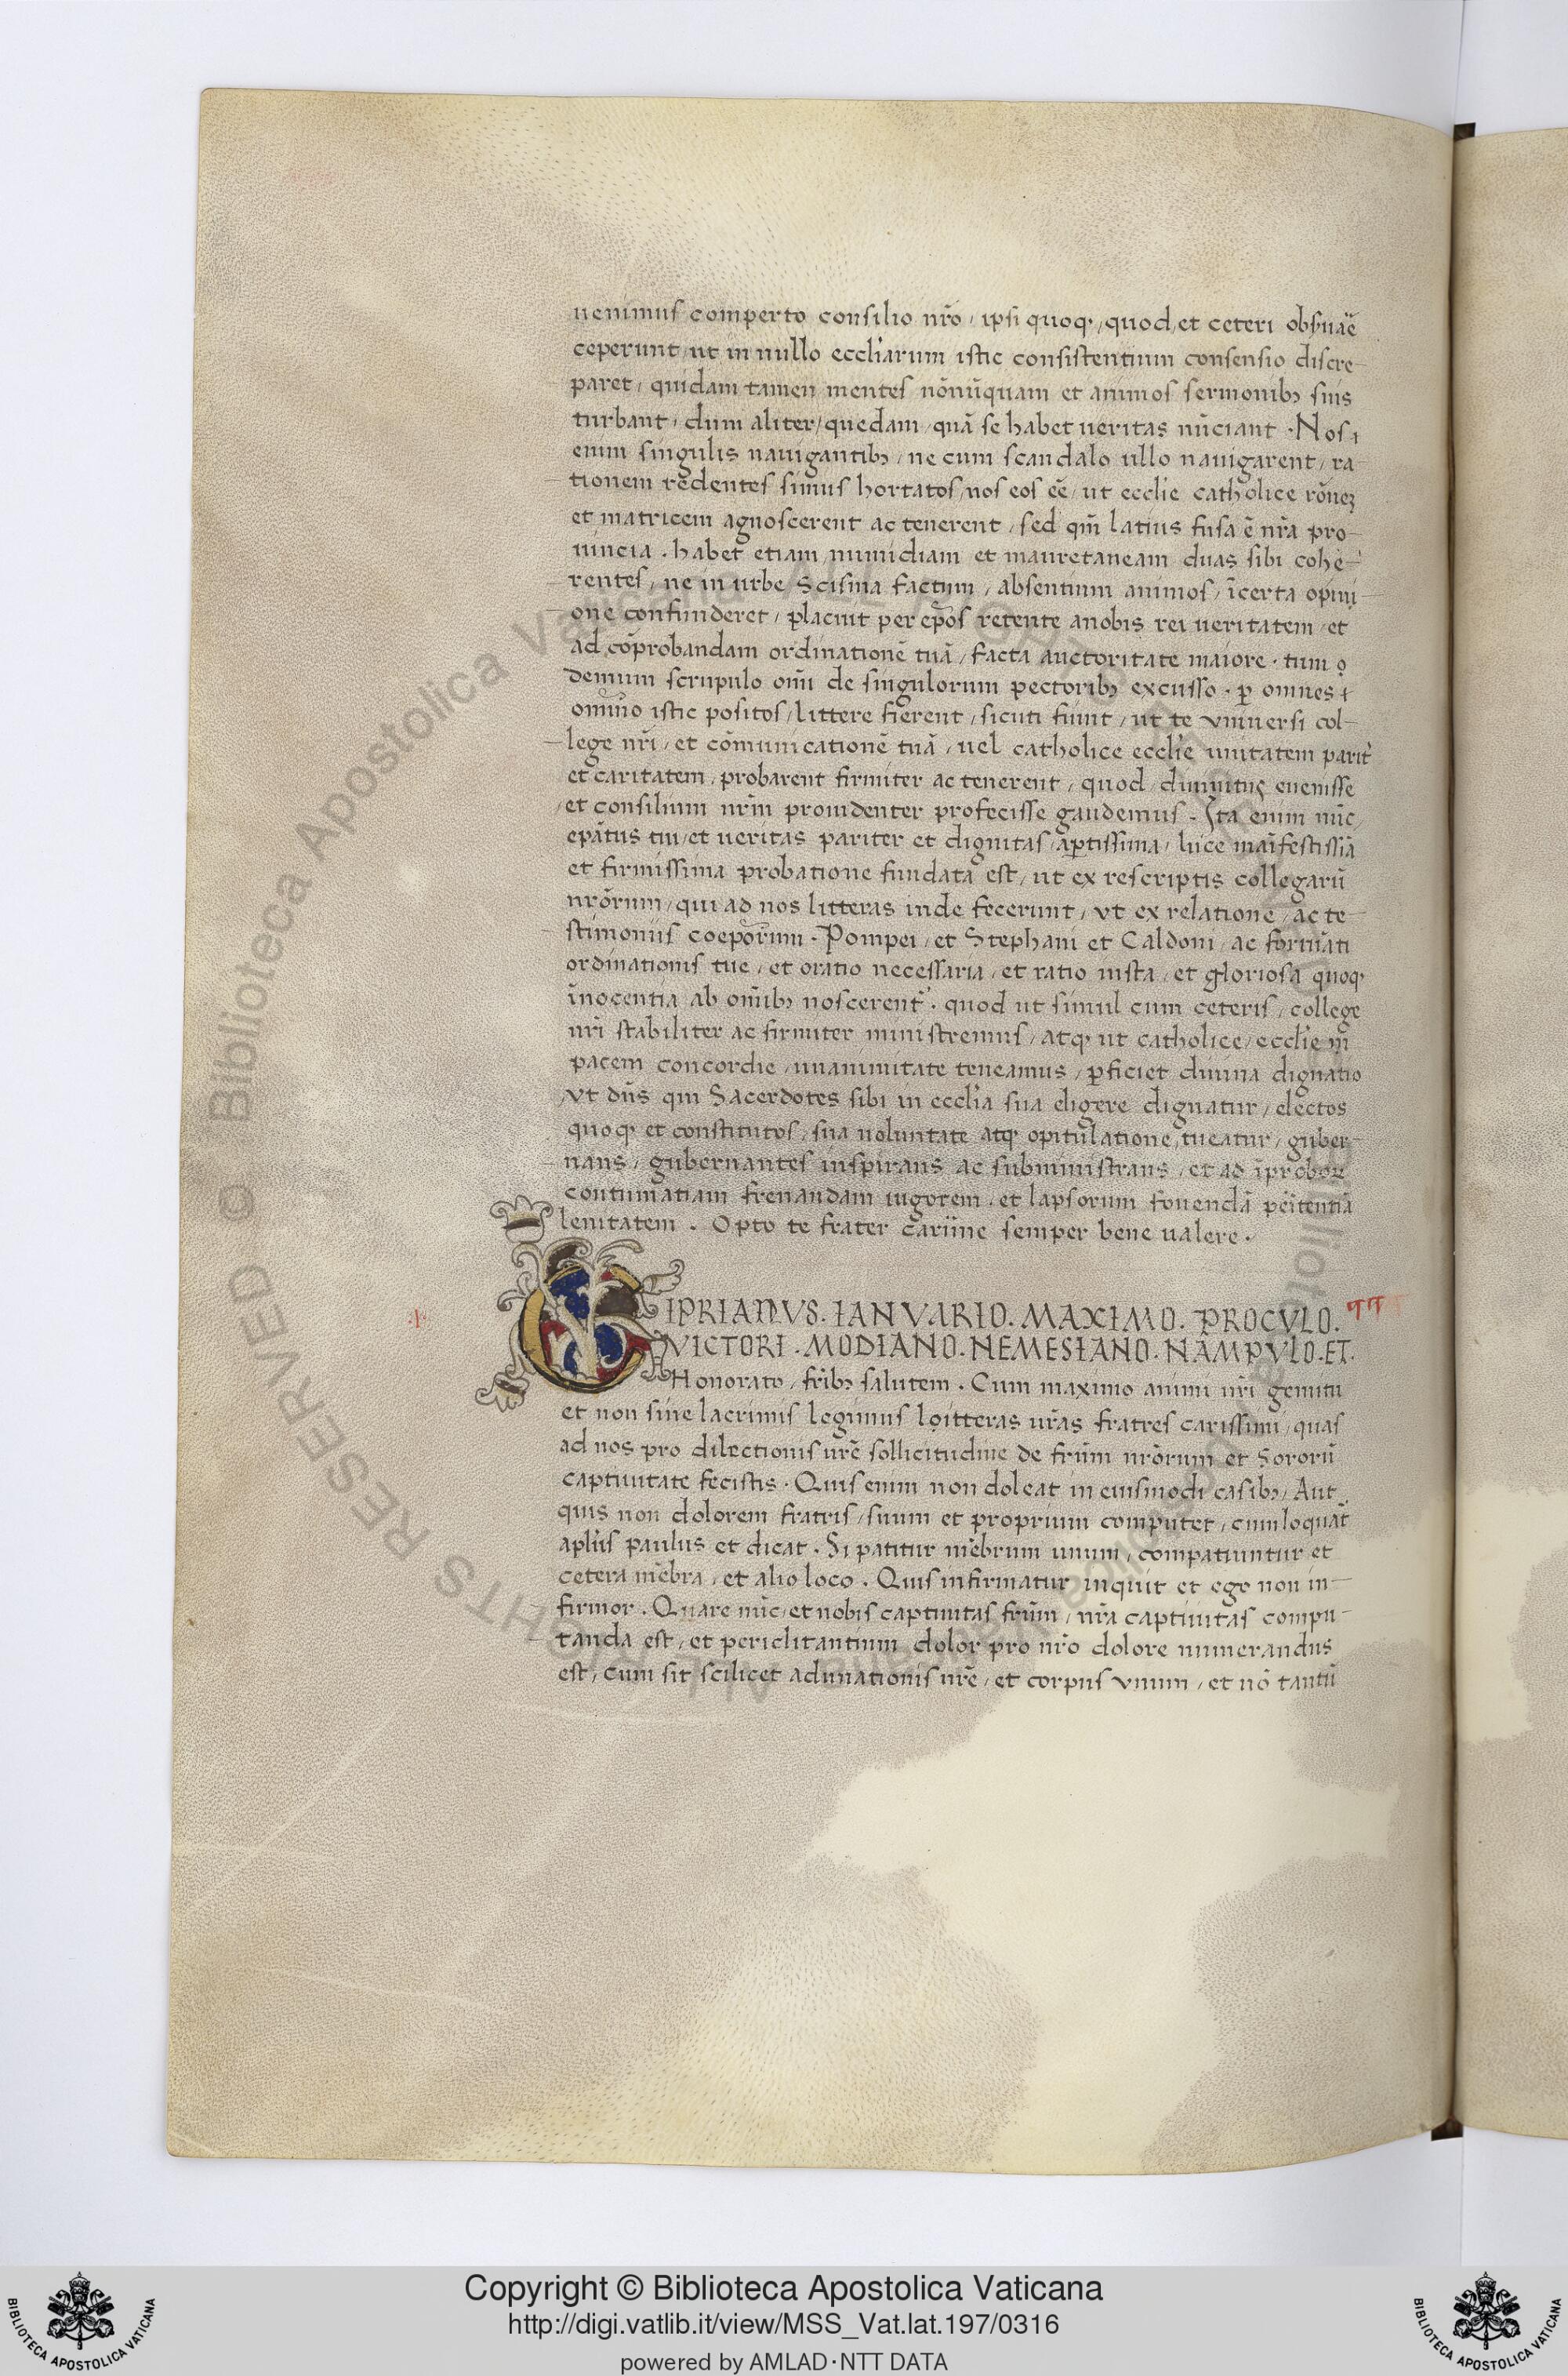 uenimus comperto consilio nr̄o, ipsi quoq, quod, et ceteri obs̄uāē
ceperunt, ut in nullo eccl'iarum istic consistentium consensio discre-
paret, quidam tamen mentes nōnūquam et animos sermonibꝫ suis
turbant, dum aliter, quedam, quā se habet ueritas nūciant. Nos,
enim singulis nauigantibꝫ, ne cum scandalo ullo nauigarent, ra-
tionem redentes simus hortatos, nos eos eē, ut eccl'ie catholice rōneꝫ
et matricem agnoscerent ac tenerent, sed qm̄ latius fusa ē nr̄a pro-
uincia. habet etiam, numidiam et mauretaneam duas sibi cohe-
rentes, ne in urbe Scisma factum, absentium animos, īcerta opini-
one confunderet, placuit per ep̄os retente anobis rei ueritatem, et
ad cōprobandam ordinationē tuā, facta auctoritate maiore. tum
demum scrupulo om̄i de singulorum pectoribꝫ excusso. ꝑ omnes
omnīno istic positos, littere fierent, sicuti fiunt, ut te vniuersi col-
lege nr̄i, et cōmunicationē tuā, uel catholice eccl'ie unitatem parit'
et caritatem, probarent firmiter ac tenerent, quod, diuinitus euenisse
et consilium nr̄m prouidenter profecisse gaudemus. Ita enim nūc,
epātus tui, et ueritas pariter et dignitas, aꝑtissima, luce māifestissiā
et firmissima probatione fundata est, ut ex rescriptis collegarū
nrōrum, qui ad nos litteras inde fecerunt, vt ex relatione, ac te-
stimoniis coeporum. Pompei, et Stephani et Caldoni, ac fortūati
ordinationis tue, et oratio necessaria, et ratio iusta, et gloriosa quoq
īnocentia ab om̄ibꝫ noscerent'. quod ut simul cum ceteris, college
nr̄i stabiliter ac firmiter ministremus, atq ut catholice, eccl'ie
pacem concordie, unanimitate teneamus, ꝑficiet diuina dignatio
vt dn̄s qui Sacerdotes sibi in eccl'ia sua eligere dignatur, electos
quoq et constitutos, sua uoluntate atq opitulatione, tueatur, guber-
nans, gubernantes inspirans ac subministrans, et ad īproboꝝ
contumatiam frenandam uigorem. et lapsorum fouendā peītentiā
lenitatem. Opto te frater cariīme semper bene ualere.
CIPRIANVS. IANVARIO. MAXIMO. PROCVLO.
VICTORI. MODIANO. NEMESIANO. NAMPVLO. ET.
Honorato, fr̄ibꝫ salutem. Cum maximo animi nr̄i gemitu
et non sine lacrimis legimus litteras ur̄as fratres carissimi, quas
ad nos pro dilectionis ur̄ē sollicitudine de frūm nrōrum et Sororū
captiuitate fecistis. Quis enim non doleat in eiusmodi casibꝫ, Aut
quis non dolorem fratris, suum et proprium computet, cum loquat'
apl'us paulus et dicat. Si patitur mēbrum unum, compatiuntur et
cetera mēbra, et alio loco. Quis infirmatur inquit et ego non in-
firmor. Quare nūc, et nobis captiuitas frūm, nr̄a captiuitas compu-
tanda est, et periclitantium dolor pro nr̄o dolore numerandus
est, cum sit scilicet adunationis nrē, et corpus vnum, et nō tantū
© Biblioteca Apostolica Vaticana ALL RIGHTS RESERVED
Copyright © Biblioteca Apostolica Vaticana
http://digi.vatlib.it/view/MSS_Vat.lat.197/0316
powered by AMLAD·NTT DATA
BIBLIOTECA APOSTOLICA VATICANA
BIBLIOTECA APOSTOLICA VATICANA